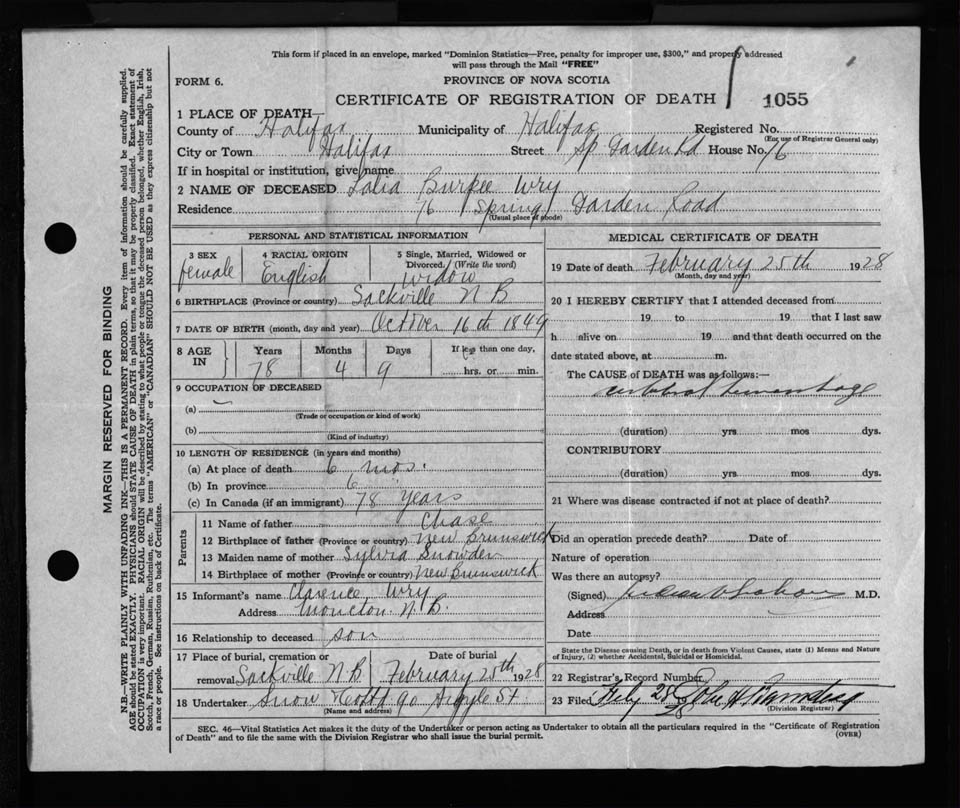 This form if placed in an envelope, marked "Dominion Statistics—Free, penalty for improper use, $300," and properly addressed
will pass through the Mail "FREE"
FORM 6.
PROVINCE OF NOVA SCOTIA
CERTIFICATE OF REGISTRATION OF DEATH 1055
1 PLACE OF DEATH
County of Halifax Municipality of Halifax Registered No.
(For use of Registrar General only)
City or Town Halifax Street Sp Garden Rd House No. 76
If in hospital or institution, give name
2 NAME OF DECEASED Burpee Wry
Residence 76 Spring Garden Road
(Usual place of abode)
PERSONAL AND STATISTICAL INFORMATION
3 SEX female
4 RACIAL ORIGIN English
5 Single, Married, Widowed or Divorced. (Write the word) widow
6 BIRTHPLACE (Province or country) Sackville N B
7 DATE OF BIRTH (month, day and year) October 16th 1849
8 AGE IN Years Months Days If less than one day,
78 4 9 hrs. or min.
9 OCCUPATION OF DECEASED
(a) —
(Trade or occupation or kind of work)
(b)
(Kind of industry)
10 LENGTH OF RESIDENCE (in years and months)
(a) At place of death 6 mos.
(b) In province 6 "
(c) In Canada (if an immigrant) 78 years
Parents
11 Name of father Chase
12 Birthplace of father (Province or country) New Brunswick
13 Maiden name of mother Sylvia Snowden
14 Birthplace of mother (Province or country) New Brunswick
15 Informant's name Clarence Wry
Address Moncton N.B.
16 Relationship to deceased son
17 Place of burial, cremation or removal Sackville N B
Date of burial February 28th 1928
18 Undertaker Snow 90 Argyle St
(Name and address)
MEDICAL CERTIFICATE OF DEATH
19 Date of death February 25th 1928
(Month, day and year)
20 I HEREBY CERTIFY that I attended deceased from
19 to 19 that I last saw
h alive on 19 and that death occurred on the
date stated above, at m.
The CAUSE of DEATH was as follows:—
cerebral hemorrhage
(duration) yrs mos dys.
CONTRIBUTORY
(duration) yrs mos dys.
21 Where was disease contracted if not at place of death?
Did an operation precede death? Date of
Nature of operation
Was there an autopsy?
(Signed) M.D.
Address
Date
State the Disease causing Death, or in death from Violent Causes, state (1) Means and Nature of Injury, (2) whether Accidental, Suicidal or Homicidal.
22 Registrar's Record Number
23 Filed Feby 28 28
(Division Registrar)
SEC. 46—Vital Statistics Act makes it the duty of the Undertaker or person acting as Undertaker to obtain all the particulars required in the "Certificate of Registration
of Death" and to file the same with the Division Registrar who shall issue the burial permit.
(OVER)
MARGIN RESERVED FOR BINDING
N.B.—WRITE PLAINLY WITH UNFADING INK—THIS IS A PERMANENT RECORD. Every item of information should be carefully supplied.
AGE should be stated EXACTLY. PHYSICIANS should STATE CAUSE OF DEATH in plain terms, so that it may be properly classified. Exact statement of
OCCUPATION is very important. RACIAL ORIGIN will be described by stating to what people or tongue the deceased person belonged, whether English, Irish,
Scotch, French, German, Russian, Ruthenian, etc. The terms "AMERICAN" or "CANADIAN" SHOULD NOT BE USED as they express citizenship but not
a race or people. See instructions on back of Certificate.